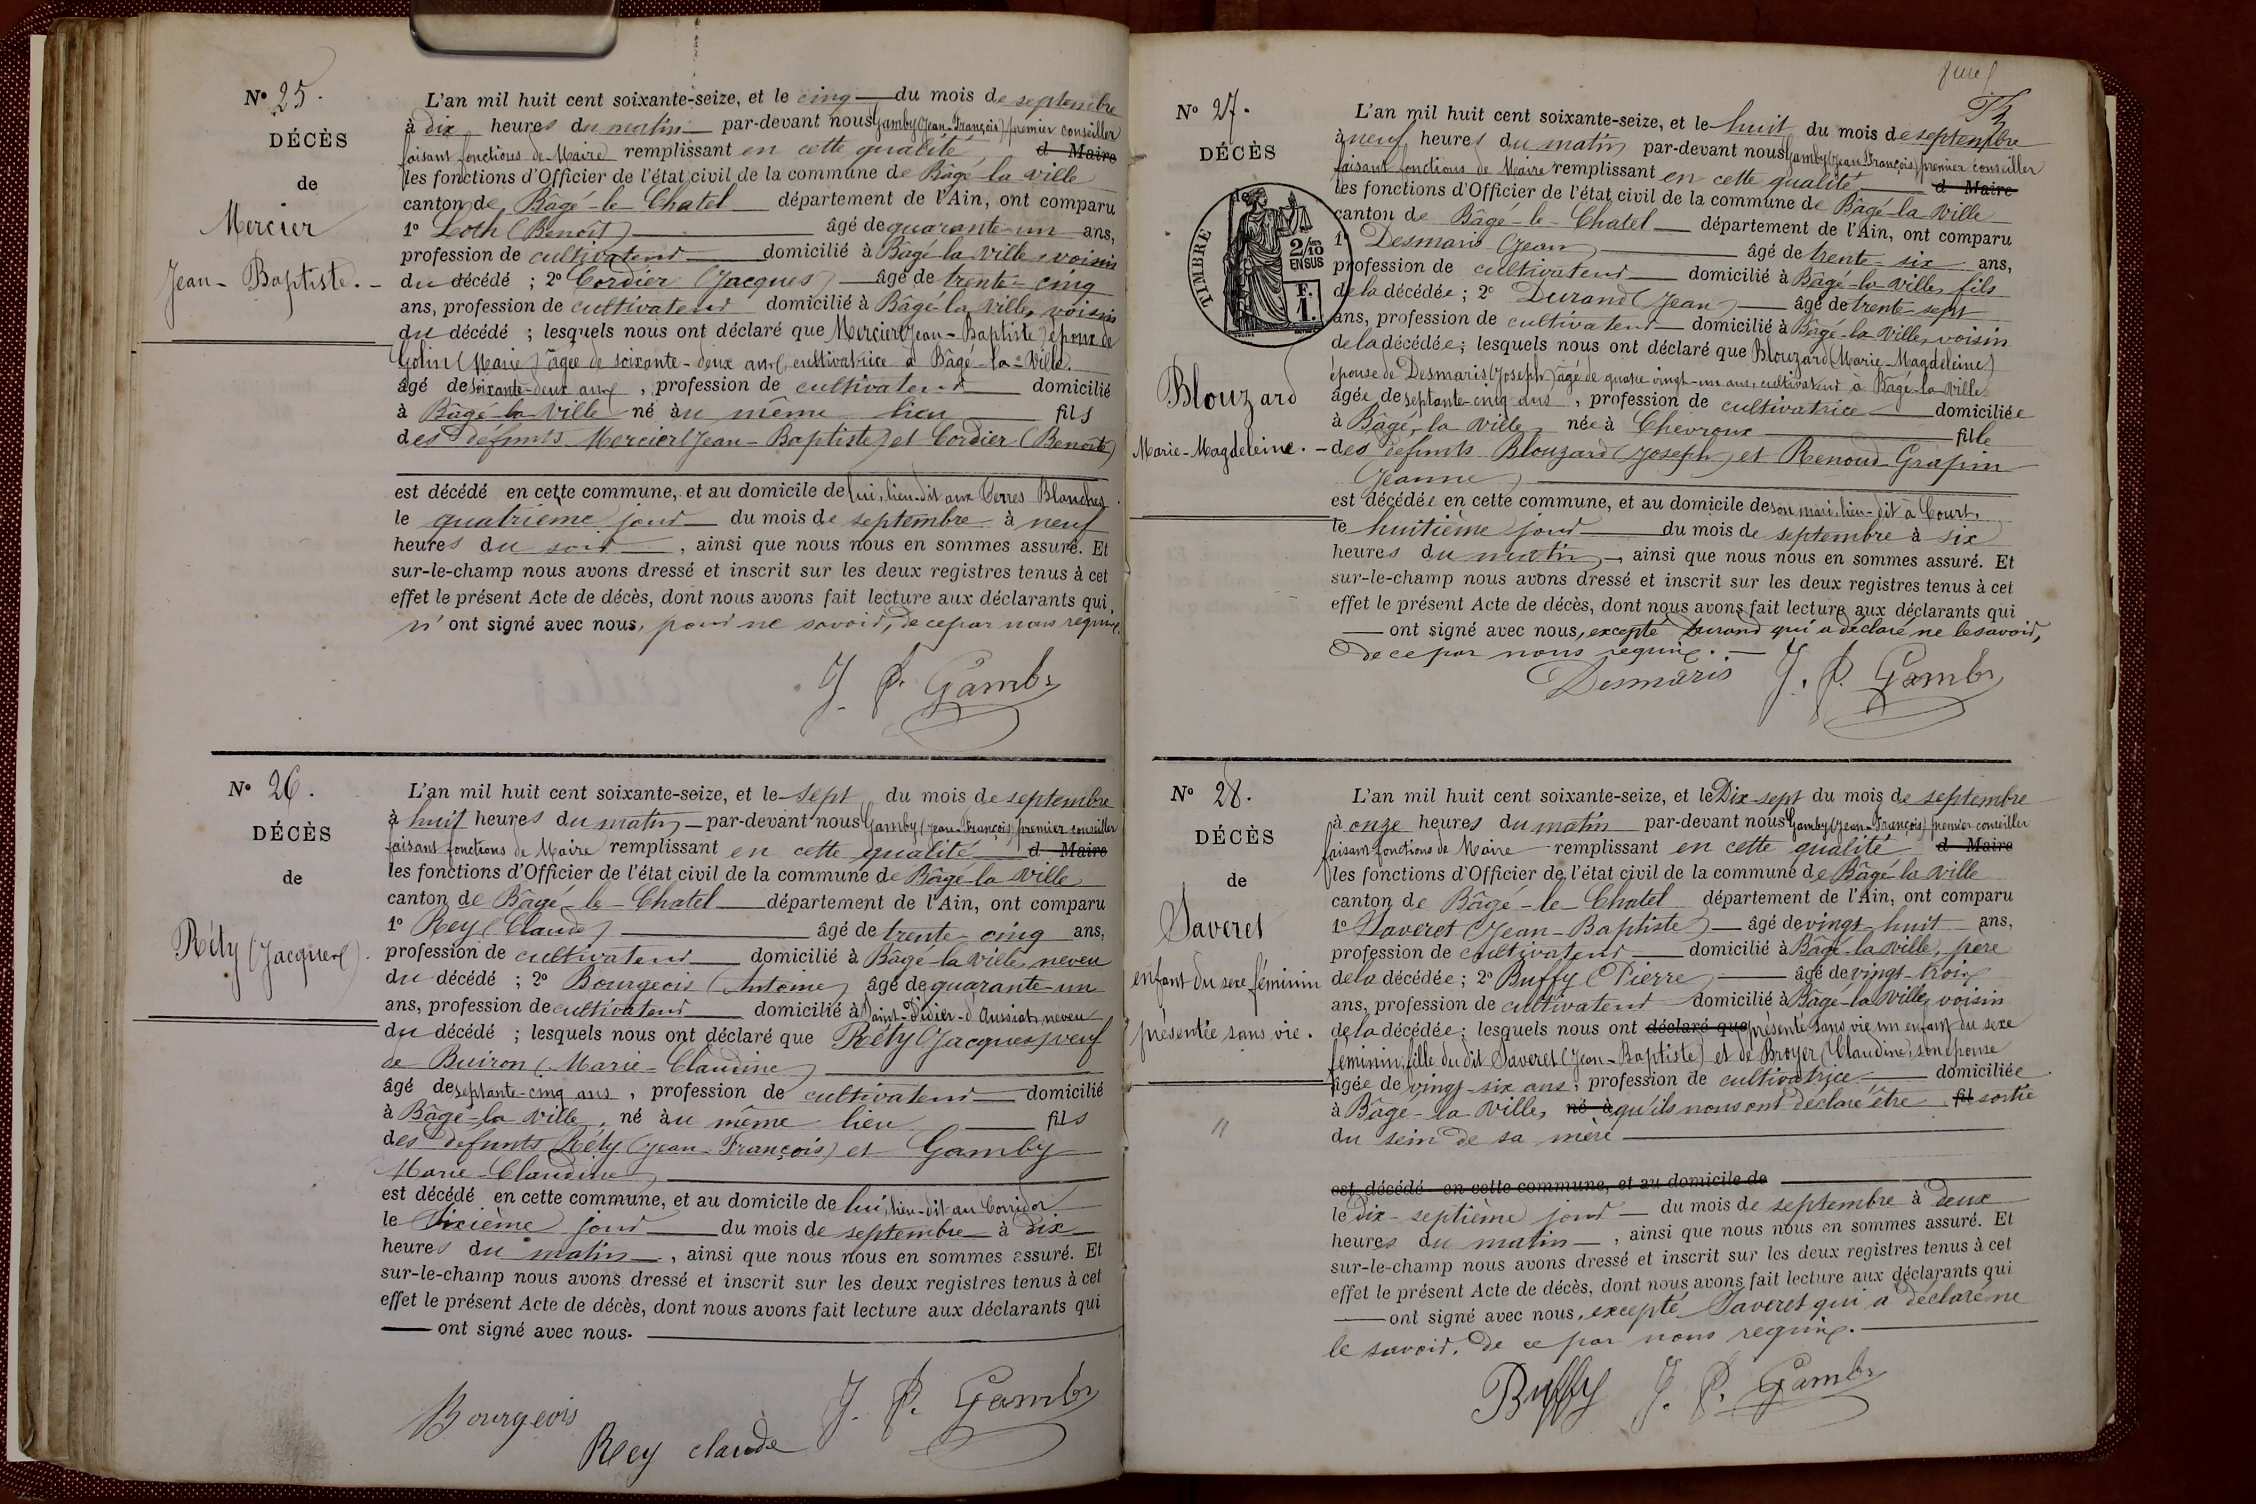 N° 25.
DÉCÈS
de
Mercier
Jean-Baptiste.
L'an mil huit cent soixante-seize, et le cinq du mois de septembre
à dix heures du matin par-devant nous Gamby (Jean-François) premier conseiller
faisant fonctions de Maire remplissant en cette qualité d Maire
les fonctions d'Officier de l'état civil de la commune de Bâgé-la-Ville
canton de Bâgé-le-Chatel département de l'Ain, ont comparu
1° Loth (Benoît) âgé de quarante-un ans,
profession de cultivateur domicilié à Bâgé-la-Ville, voisin
du décédé ; 2° Cordier (Jacques) âgé de trente-cinq
ans, profession de cultivateur domicilié à Bâgé-la-Ville, voisin
du décédé ; lesquels nous ont déclaré que Mercier (Jean-Baptiste) époux de
(Marie) âgée de soixante-deux ans, cultivatrice à Bâgé-la-Ville.
âgé de soixante-deux ans, profession de cultivateur domicilié
à Bâgé-la-Ville né au même lieu fils
des défunts Mercier (Jean-Baptiste) et Cordier (Benoîte)
est décédé en cette commune, et au domicile de lui, lieu-dit aux Terres Blanches
le quatrième jour du mois de septembre à neuf
heures du soir, ainsi que nous nous en sommes assuré. Et
sur-le-champ nous avons dressé et inscrit sur les deux registres tenus à cet
effet le présent Acte de décès, dont nous avons fait lecture aux déclarants qui
n'ont signé avec nous, pour ne savoir, de ce par nous requis.
J. F. Gamby
N° 26.
DÉCÈS
de
Réty (Jacques).
L'an mil huit cent soixante-seize, et le sept du mois de septembre
à huit heures du matin par-devant nous Gamby (Jean-François) premier conseiller
faisant fonctions de Maire remplissant en cette qualité d Maire
les fonctions d'Officier de l'état civil de la commune de Bâgé-la-Ville
canton de Bâgé-le-Chatel département de l'Ain, ont comparu
1° Rey (Claude) âgé de trente-cinq ans,
profession de cultivateur domicilié à Bâgé-la-Ville, neveu
du décédé ; 2° Bourgeois (Antoine) âgé de quarante-un
ans, profession de cultivateur domicilié à Saint-Didier-d'Aussiat, neveu
du décédé ; lesquels nous ont déclaré que Réty (Jacques) veuf
de Buiron (Marie-Claudine)
âgé de septante-cinq ans, profession de cultivateur domicilié
à Bâgé-la-Ville, né au même lieu fils
des défunts Réty (Jean-François) et Gamby
Marie-Claudine
est décédé en cette commune, et au domicile de lui, lieu-dit au Corridor
le sixième jour du mois de septembre à dix
heures du matin, ainsi que nous nous en sommes assuré. Et
sur-le-champ nous avons dressé et inscrit sur les deux registres tenus à cet
effet le présent Acte de décès, dont nous avons fait lecture aux déclarants qui
ont signé avec nous.
Bourgeois
Rey claude
J. F. Gamby
N° 27.
DÉCÈS
TIMBRE
2/10 EN SUS
F. 1.
Blouzard
Marie-Magdeleine.
L'an mil huit cent soixante-seize, et le huit du mois de septembre
à neuf heures du matin par-devant nous Gamby (Jean François) premier conseiller
faisant fonctions de Maire remplissant en cette qualité d Maire
les fonctions d'Officier de l'état civil de la commune de Bâgé-la-Ville
canton de Bâgé-le-Chatel département de l'Ain, ont comparu
1° Desmaris (Jean) âgé de trente-six ans,
profession de cultivateur domicilié à Bâgé-la-Ville, fils
de la décédée ; 2° Durand (Jean) âgé de trente-sept
ans, profession de cultivateur domicilié à Bâgé-la-Ville, voisin
de la décédée ; lesquels nous ont déclaré que Blouzard (Marie-Magdeleine)
épouse de Desmaris (Joseph) âgé de quatre vingt-un ans, cultivateur à Bâgé-la-Ville
âgée de septante-cinq ans, profession de cultivatrice domiciliée
à Bâgé-la-Ville, née à Chevroux fille
des défunts Blouzard (Joseph) et Renoud-Grapin
Jeanne)
est décédée en cette commune, et au domicile de son mari, lieu-dit à Court,
le huitième jour du mois de septembre à six
heures du matin, ainsi que nous nous en sommes assuré. Et
sur-le-champ nous avons dressé et inscrit sur les deux registres tenus à cet
effet le présent Acte de décès, dont nous avons fait lecture aux déclarants qui
ont signé avec nous, excepté Durand qui a déclaré ne le savoir,
de ce par nous requis.
Desmaris J. F. Gamby
N° 28.
DÉCÈS
de
Saveret
enfant du sexe féminin
présentée sans vie.
L'an mil huit cent soixante-seize, et le Dix-sept du mois de septembre
à onze heures du matin par-devant nous Gamby (Jean-François) premier conseiller
faisant fonctions de Maire remplissant en cette qualité d Maire
les fonctions d'Officier de l'état civil de la commune de Bâgé-la-Ville
canton de Bâgé-le-Chatel département de l'Ain, ont comparu
1° Saveret (Jean-Baptiste) âgé de vingt-huit ans,
profession de cultivateur domicilié à Bâgé-la-Ville, père
de la décédée ; 2° Buffy (Pierre) âgé de vingt-trois
ans, profession de cultivateur domicilié à Bâgé-la-Ville, voisin
de la décédée ; lesquels nous ont déclaré que présenté sans vie un enfant du sexe
féminin, fille du dit Saveret (Jean-Baptiste) et de Broyer (Claudine) son épouse
âgée de vingt-six ans, profession de cultivatrice domiciliée
à Bâgé-la-Ville, né à qu'ils nous ont déclaré être fil sortie
du sein de sa mère
est décédé en cette commune, et au domicile de
le dix-septième jour du mois de septembre à deux
heures du matin, ainsi que nous nous en sommes assuré. Et
sur-le-champ nous avons dressé et inscrit sur les deux registres tenus à cet
effet le présent Acte de décès, dont nous avons fait lecture aux déclarants qui
ont signé avec nous, excepté Saveret qui a déclaré ne
le savoir, de ce par nous requis.
Buffy J. F. Gamby